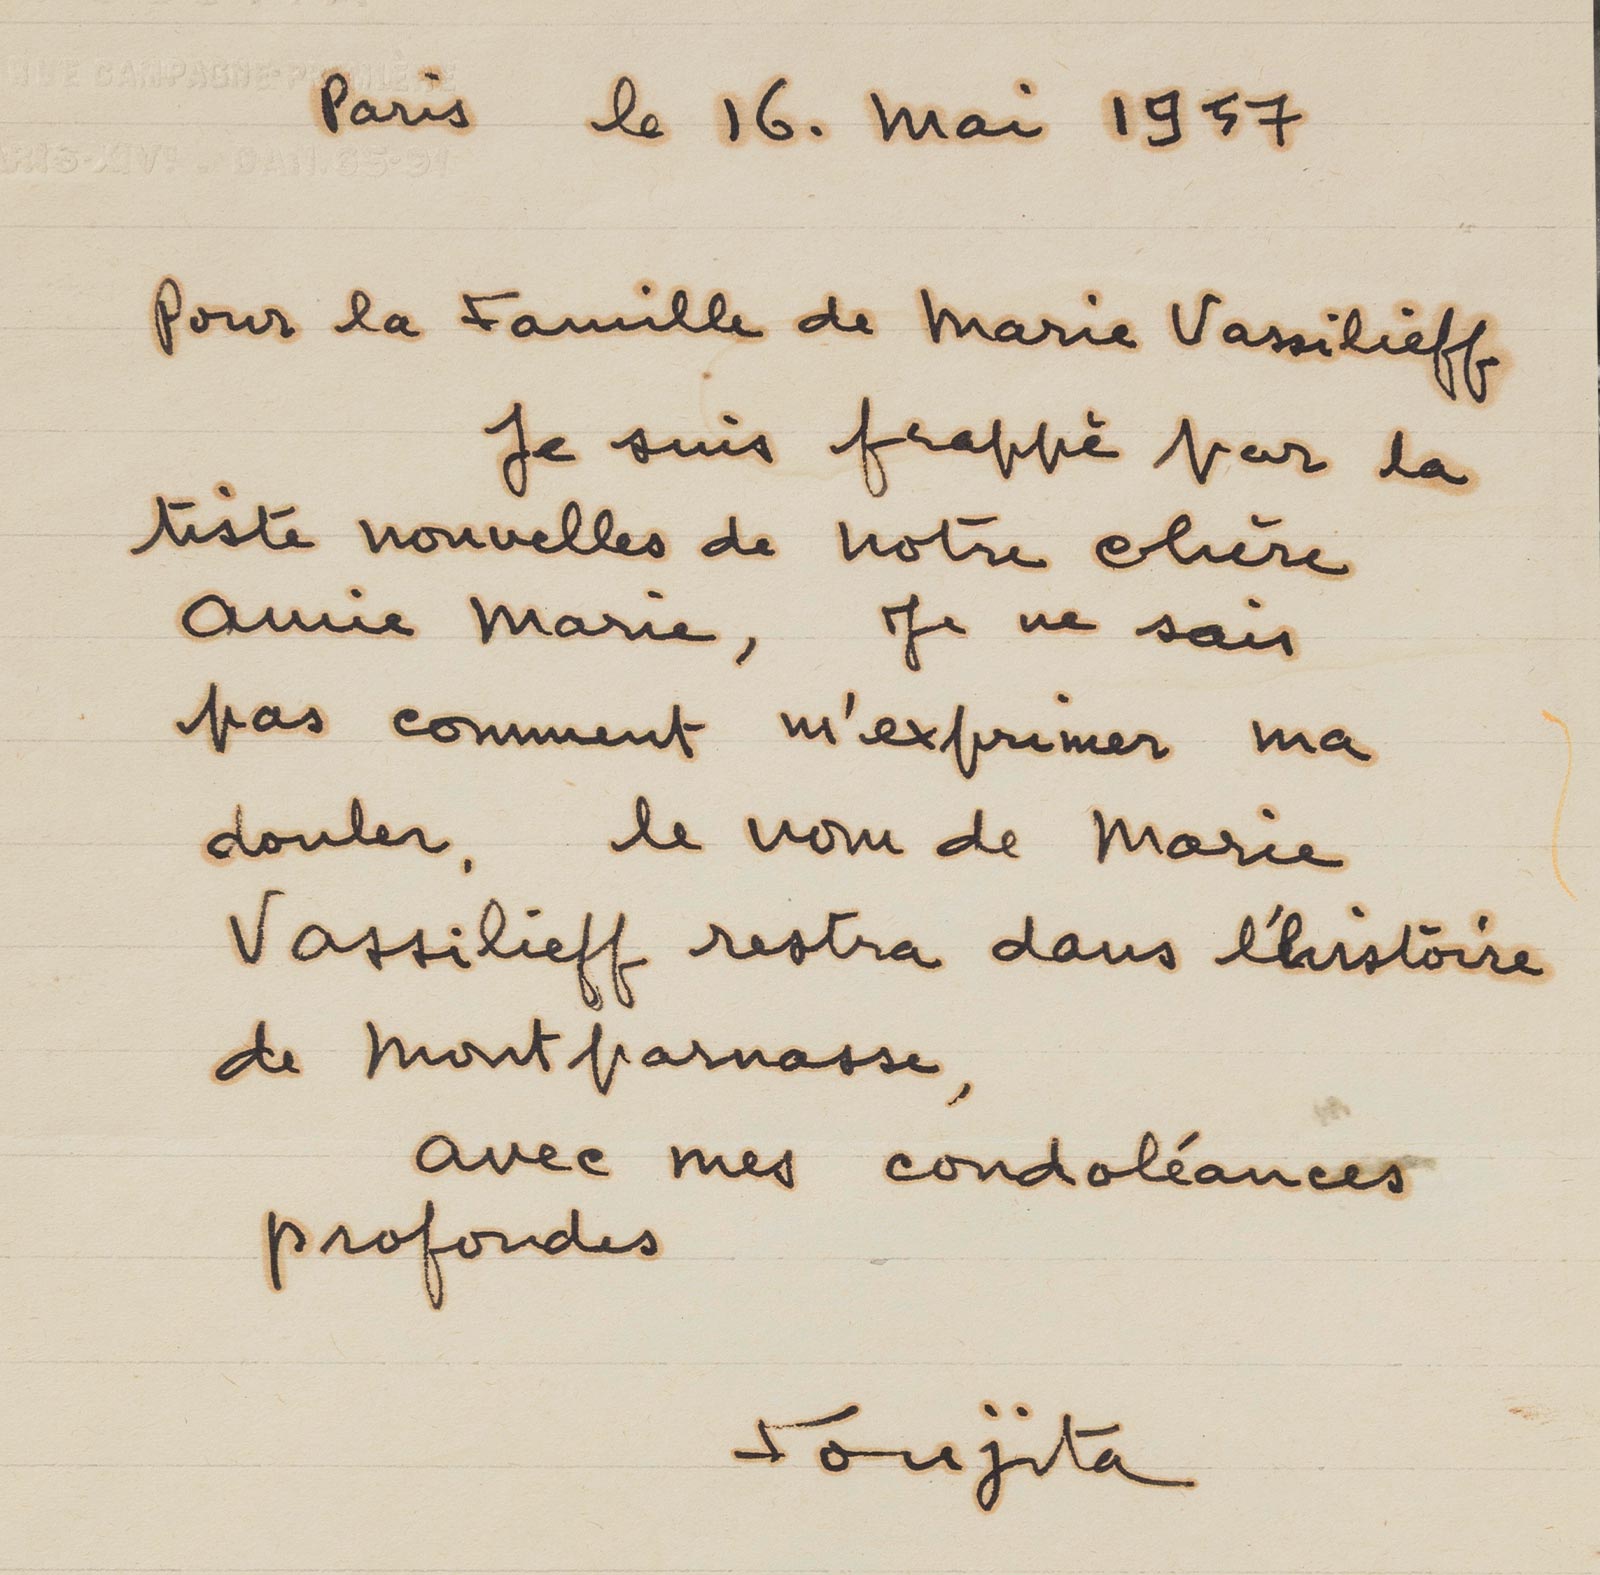 RUE CAMPAGNE-PREMIÈRE
PARIS-XIVᵉ - DAN. 65-91
Paris le 16. Mai 1957
Pour la Famille de Marie Vassilieff
Je suis frappé par la
tiste nouvelles de notre chère
amie Marie, Je ne sais
pas comment m'exprimer ma
douler, le nom de Marie
Vassilieff restra dans l'histoire
de Montparnasse,
avec mes condoléances
profondes
Foujita